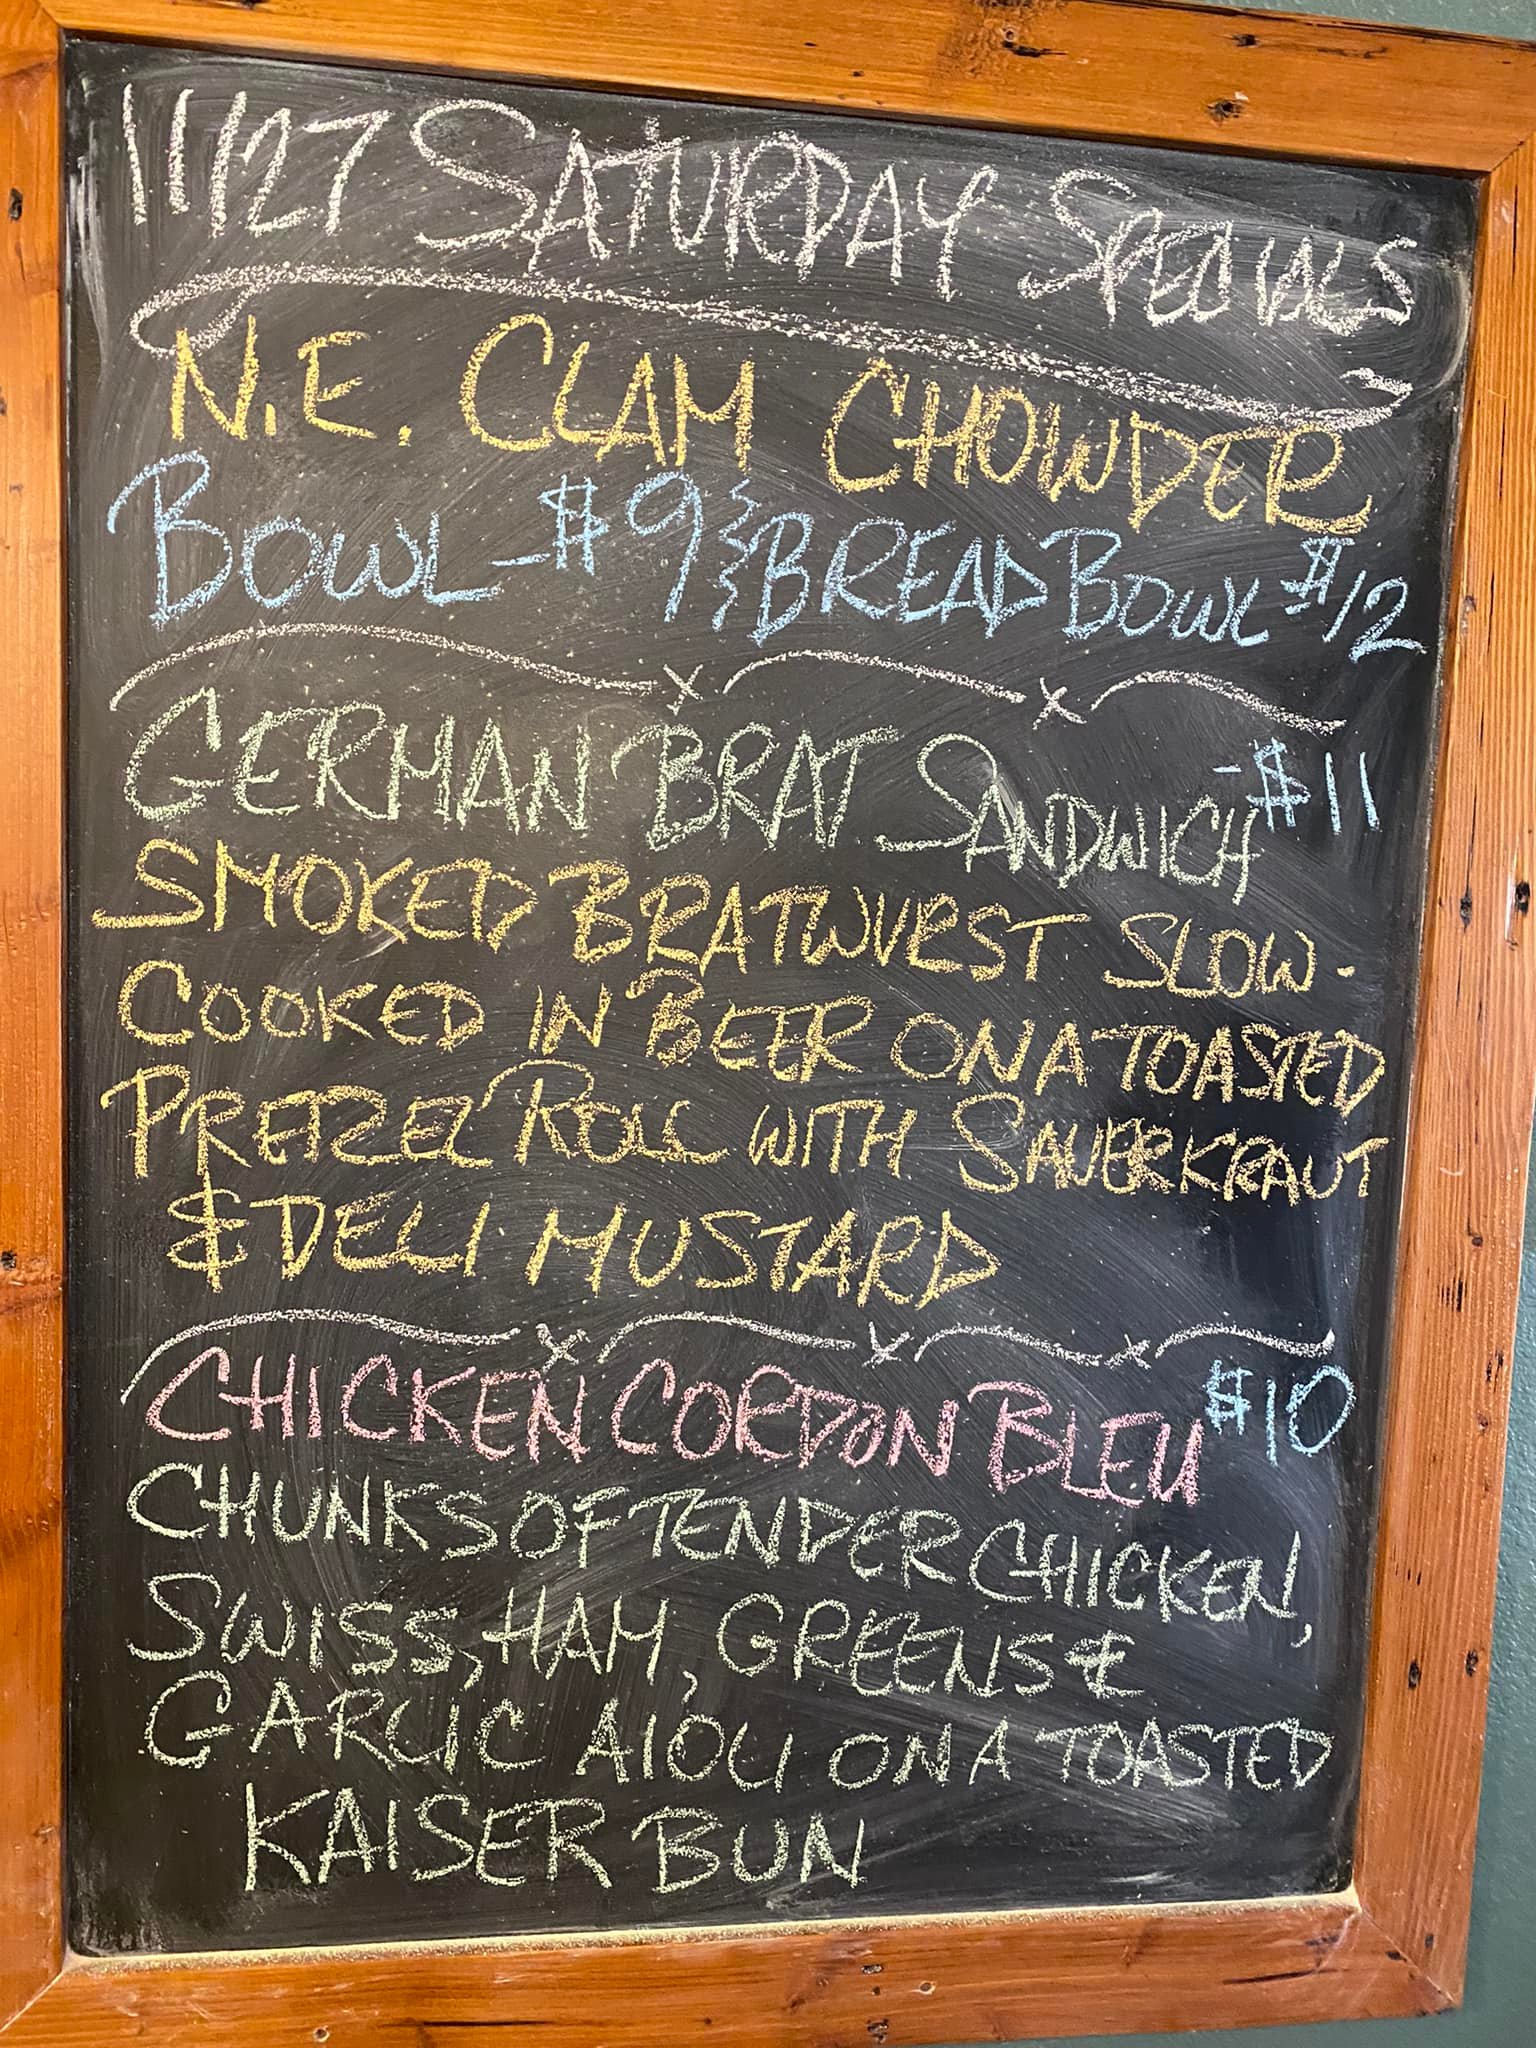 11/27 SATURDAY SPECIALS
N.E. CLAM CHOWDER
BOWL - $9 & BREAD BOWL $12
GERMAN BRAT SANDWICH - $11
SMOKED BRATWURST SLOW-
COOKED IN BEER ON A TOASTED
PRETZEL ROLL WITH SAUERKRAUT
& DELI MUSTARD
CHICKEN CORDON BLEU $10
CHUNKS OF TENDER CHICKEN,
SWISS, HAM, GREENS &
GARLIC AIOLI ON A TOASTED
KAISER BUN